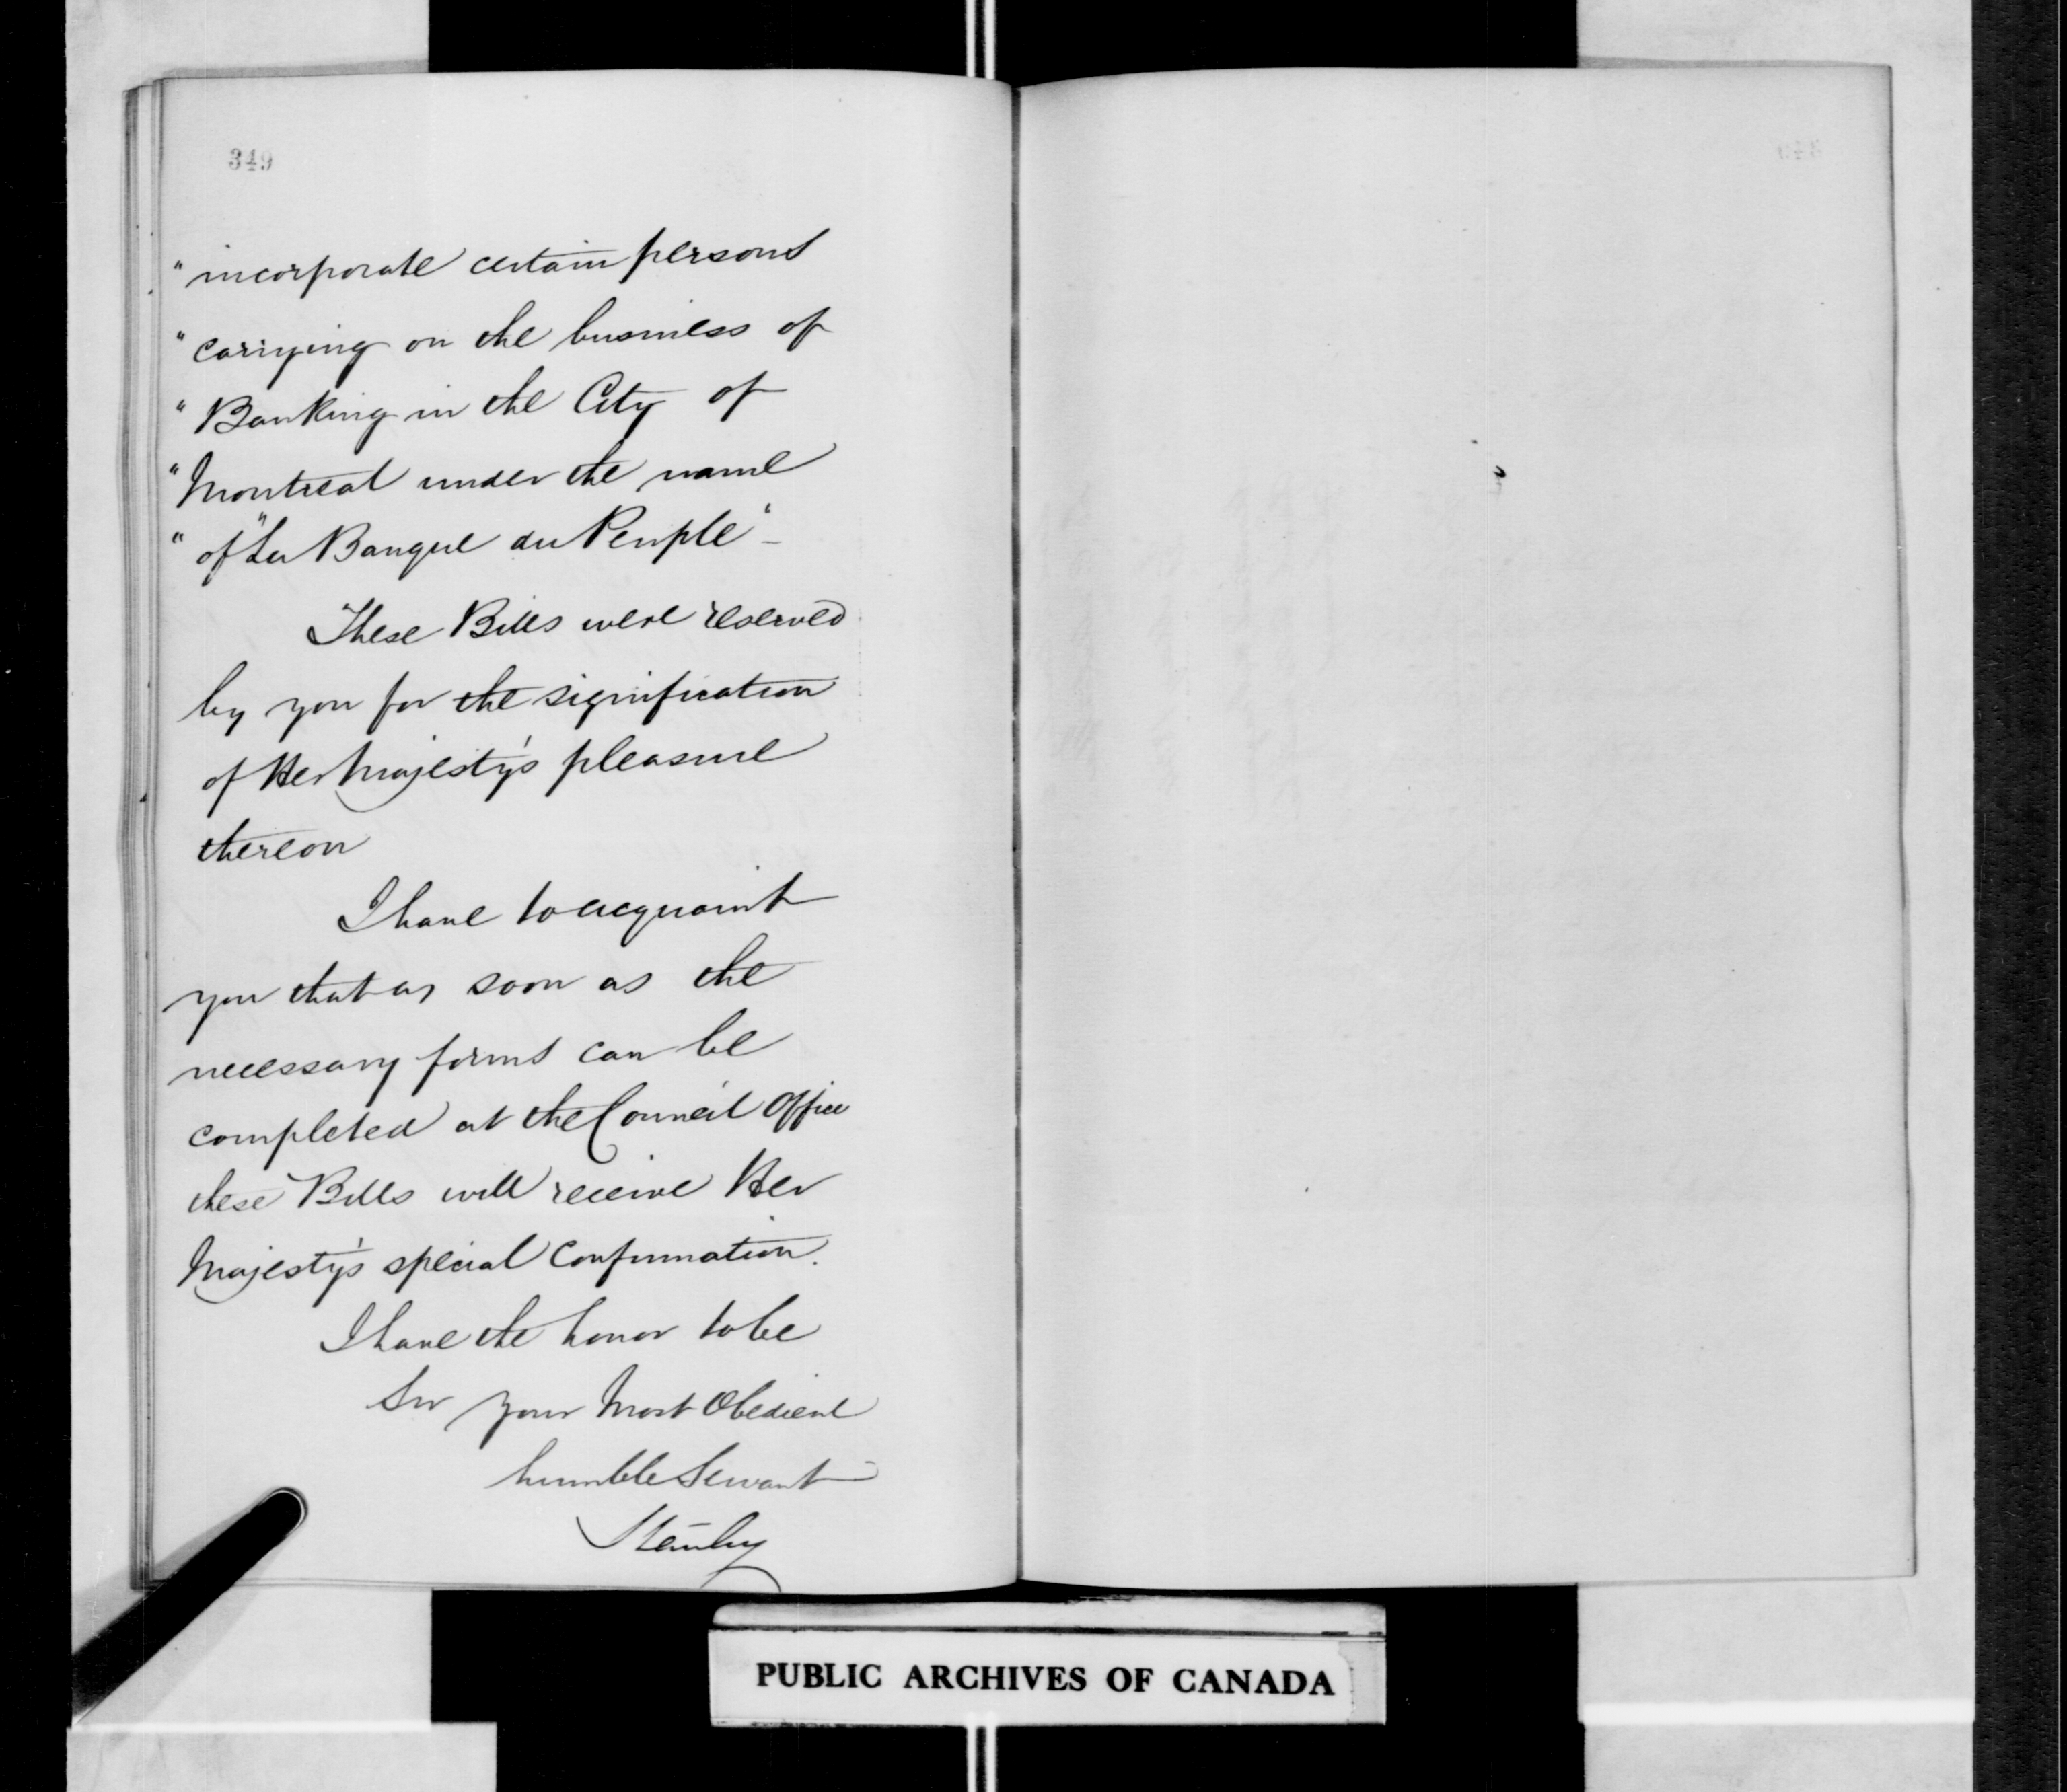 349
" incorporate certain persons
" carrying on the business of
" Banking in the City of
" Montreal under the name
" of "La Banque du Peuple" -
These Bills were reserved
by you for the signification
of Her Majesty's pleasure
thereon
I have to acquaint
you that as soon as the
necessary forms can be
completed at the Council Office
these Bills will receive Her
Majesty's special confirmation.
I have the honor to be
Sir your Most Obedient
humble Servant
Stanley
PUBLIC ARCHIVES OF CANADA